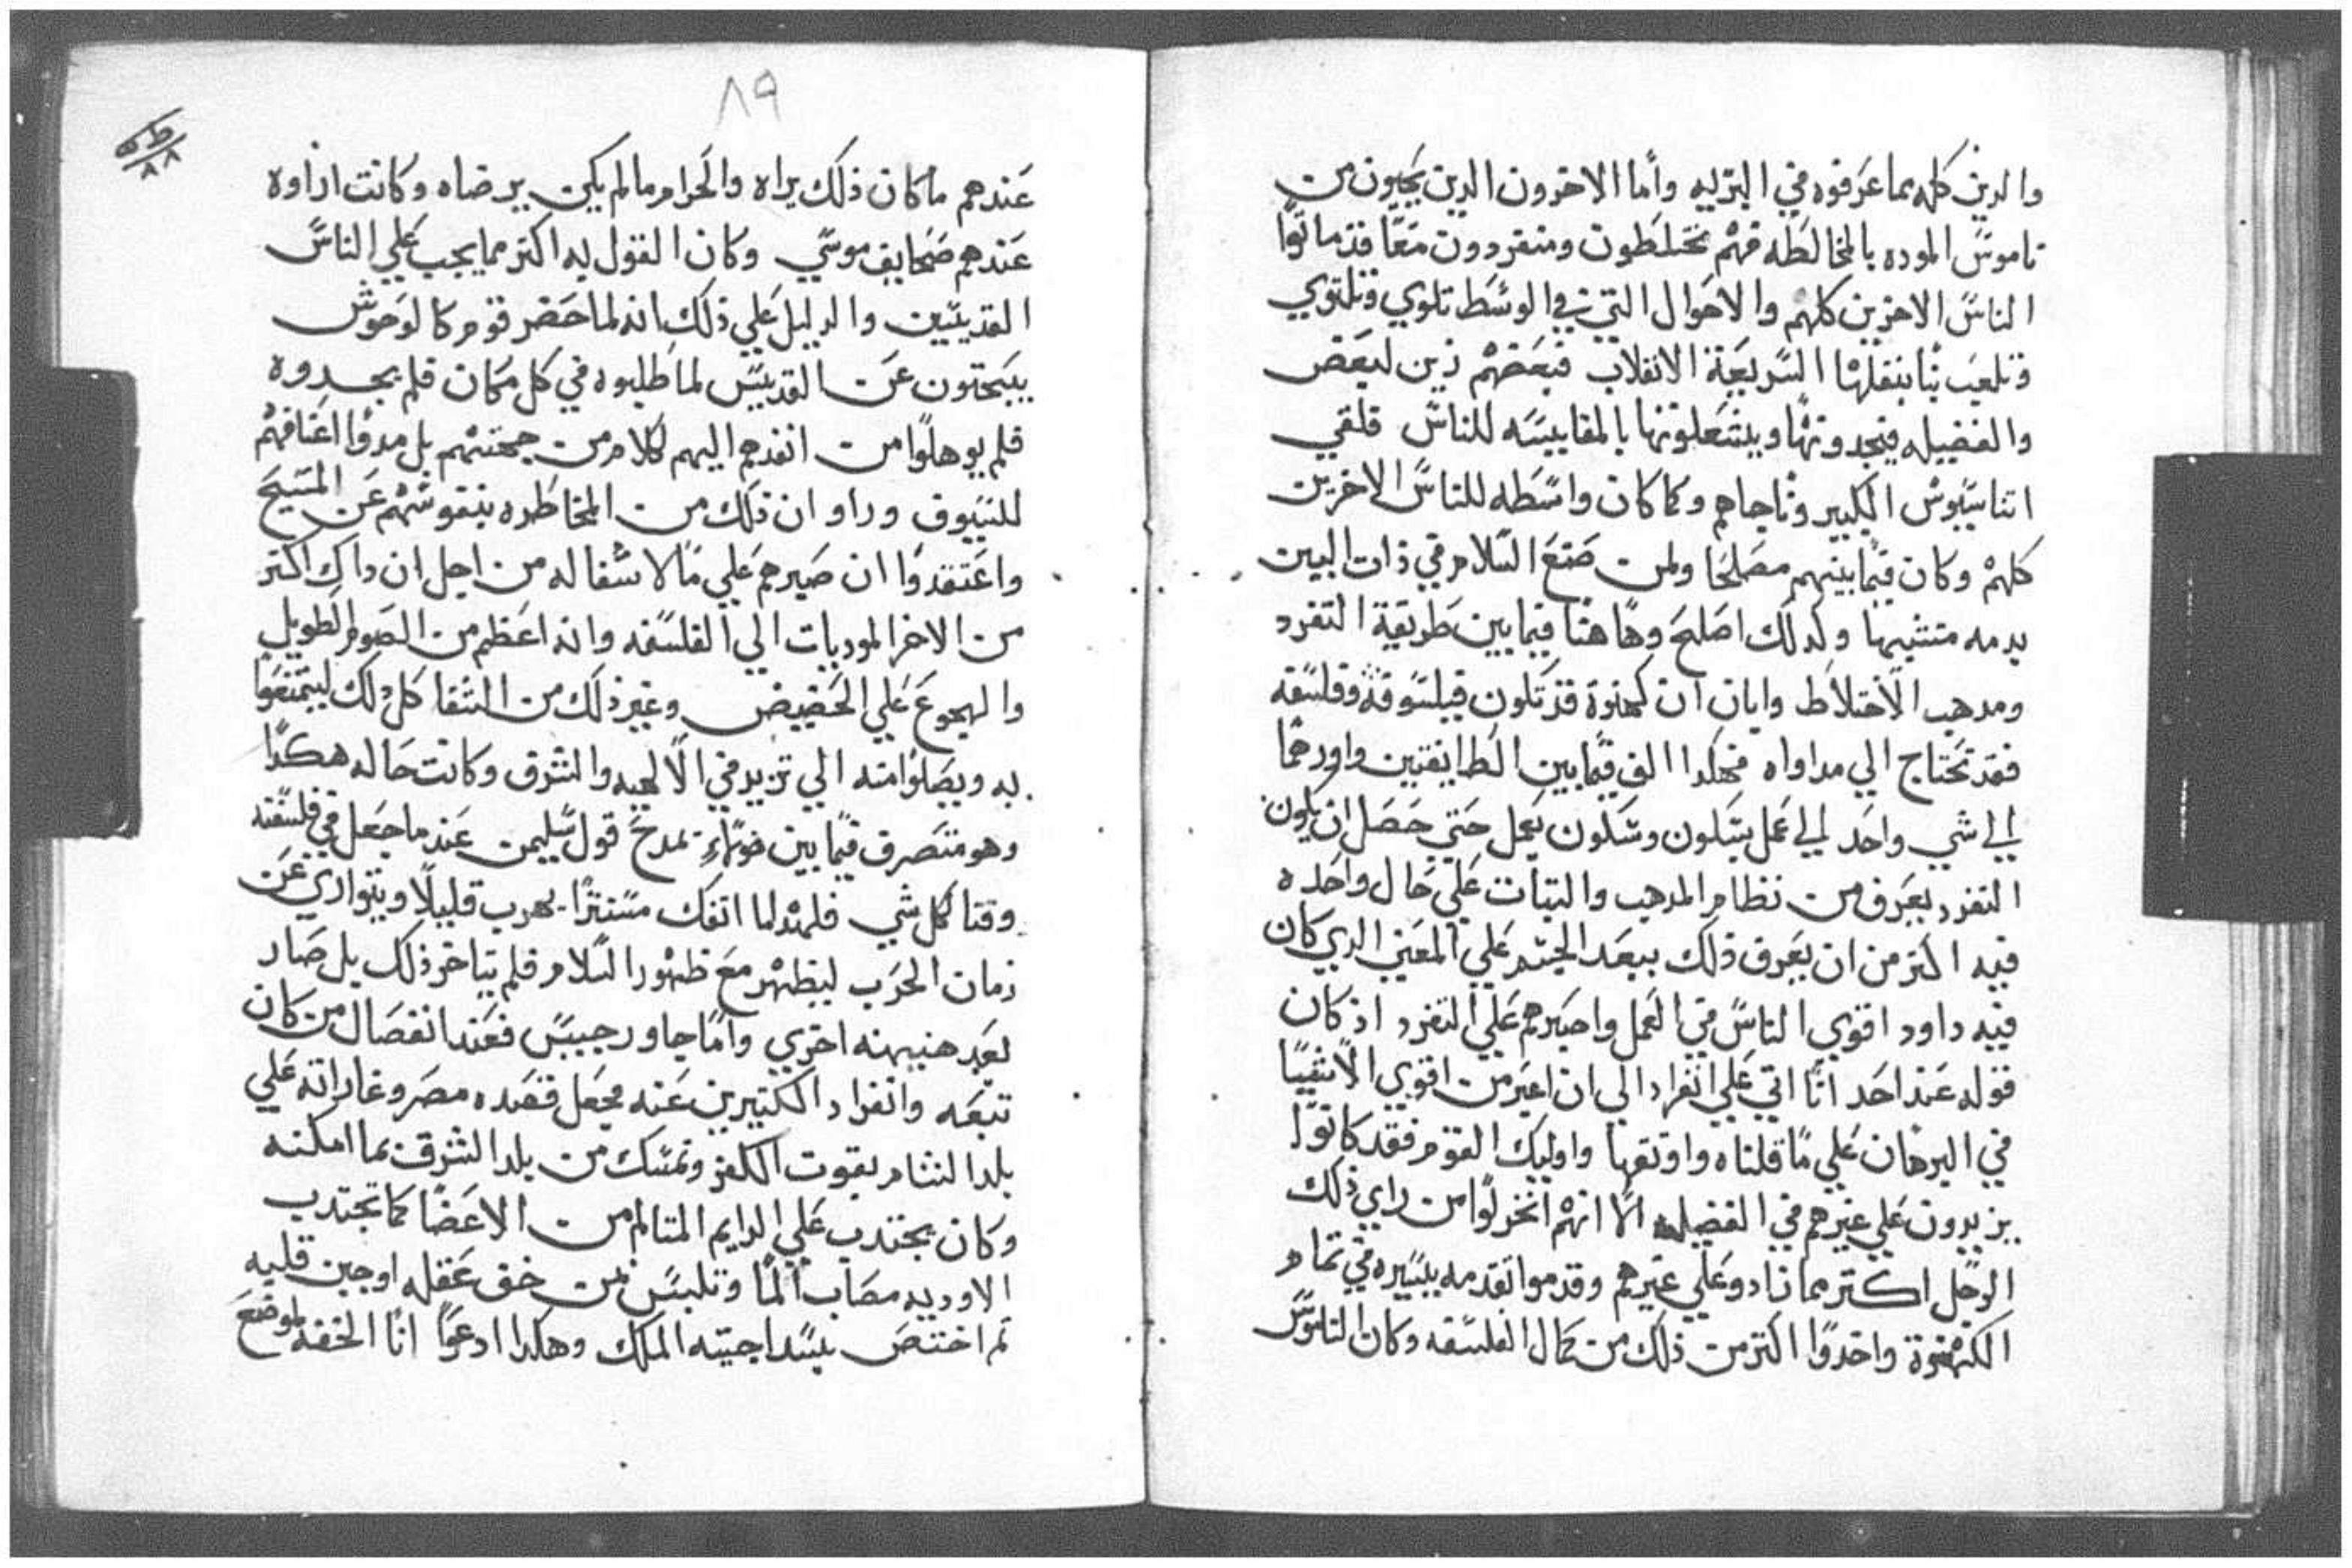 والدين كله بما عرفوه في البريه وأما الاخرون الدين يجيون من
ناموس الموده بالمخالطه فهم مختلطون ومنفردون معًا قد ماتوا
الناس الاخرين كلهم والاحوال التي في الوسط تلوي وتلتوي
وتلعب بنا بنقلتها السريعة الانقلاب فبعضهم زين لبعض
والفضيله فيجدونها ويشعلونها بالمقايسه للناس فلقي
اتناسيوس الكبير وناجاهم وكما كان واسطه للناس الاخرين
كلهم وكان فيما بينهم مصلحا ولمن صنع السلام في ذات البين
بدمه متشبها ولدلك اصلح وهاهنا فيما بين طريقة التفرد
ومدهب الاختلاط وابان ان كهنوة قد تكون فيلسوفة وفلسفه
فقد تحتاج الي مداواه فهكدا الف فيما بين الطايفتين واوردهما
الي شي واحد الي عمل بسكون وسكون بعمل حتي حصل ان يكون
التفرد يعرف من نظام المدهب والتبات علي حال واحده
فيه اكتر من ان يعرف ذلك ببعد الجسم علي المعني الدي كان
فيه داود اقوي الناس في العمل واصبرهم علي التفرد اذ كان
قوله عند احد انا اتي علي انفراد الي ان اعبر من اقوي الاشيا
في البرهان علي ما قلناه واوتقها واوليك القوم فقد كانوا
يزيدون علي غيرهم في الفضيله الا انهم انخزلوا من راي ذلك
الرجل اكتر مما زادو علي غيرهم وقدموا تقدمه يسيره في تمام
الكهنوة واخدوا اكتر من ذلك من كمال الفلسفه وكان الناموس
٨٩
عندهم ما كان ذلك يراه والحرام ما لم يكن يرضاه وكانت اراوه
عندهم صحايف موسي وكان القول له اكتر مما يجب علي الناس
القديسين والدليل علي ذلك انه لما حضر قوم كالوحوش
يبحتون عن القديس لما طلبوه في كل مكان فلم يجدوه
فلم يوهلوا من انفدهم اليهم لكلام من جهتهم بل مدوا اعناقهم
للسيوف وراو ان ذلك من المخاطره بنفوسهم عن المسيح
واعتقدوا ان صبرهم علي مالا شفا له من اجل ان داك اكتر
من الاخر الموديات الي الفلسفه وانه اعظم من الصوم الطويل
والهجوع علي الحضيض وغير ذلك من الشقا كل دلك ليتمتعوا
به ويصلوا منه الي تزيد في الالهيه والشرف وكانت حاله هكدا
وهو متصرف فيما بين هولاء بمدح قول سليمن عند ما جعل في فلسفته
وقتا لكل شي فلهدا لما انفك مستترًا يهرب قليلًا ويتواري عن
زمان الحرب ليظهر مع ظهور السلام فلم يتاخر ذلك بل صار
بعد هنيهنه اخري واما جاورجيس فعند انفصال من كان
تبعه وانفراد الكتيرين عنه جعل قصده مصر وغاراته علي
بلد الشام بقوت الكفر وتمسك من بلد الشرق بما امكنه
وكان يجتدب علي الدايم المتالم من الاعضا كما تجتدب
الاوديه مصاب الما وتلبس بمن خف عقله او جبن قلبه
تم اختص بسداجته الملك وهكدا ادعوا انا الخفه لموضع